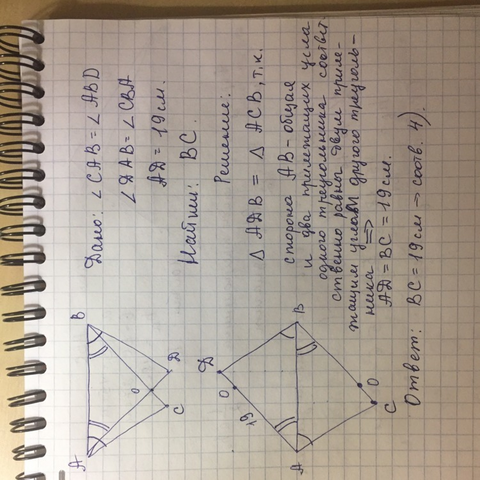 Дано: ∠CAB = ∠ABD
∠DAB = ∠CBA
AD = 19 см.
Найти: BC.
Решение:
△ ADB = △ ACB, т.к.
сторона AB - общая
и два прилежащих угла
одного треугольника соответ
ственно равны двум приле-
жащим углам другого треуголь-
ника =>
AD = BC = 19 см.
Ответ: BC = 19 см → соотв. 4).
A
B
O
C
D
D
O
19
A
B
O
C